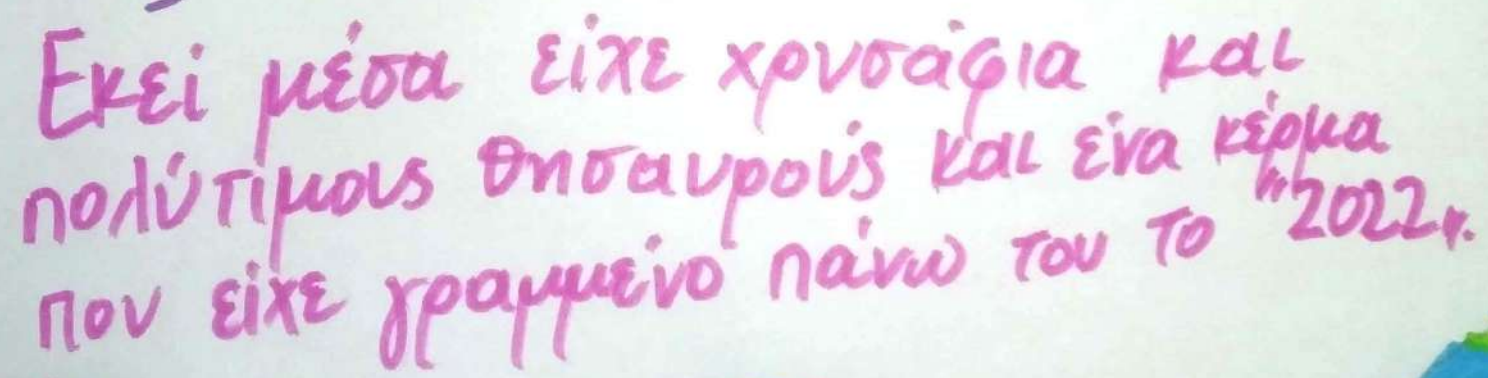 Εκεί μέσα είχε χρυσάφια και
πολύτιμους θησαυρούς και ένα κέρμα
που είχε γραμμένο πάνω του το "2022".